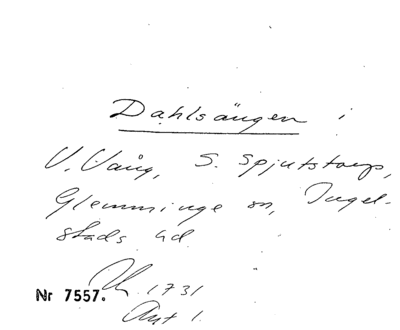 Dahlsängen i
V. Vång, S. Spjutstorp,
Glemminge sn, Ingel-
stads hd
1731
Nr 7557.
Akt 1.